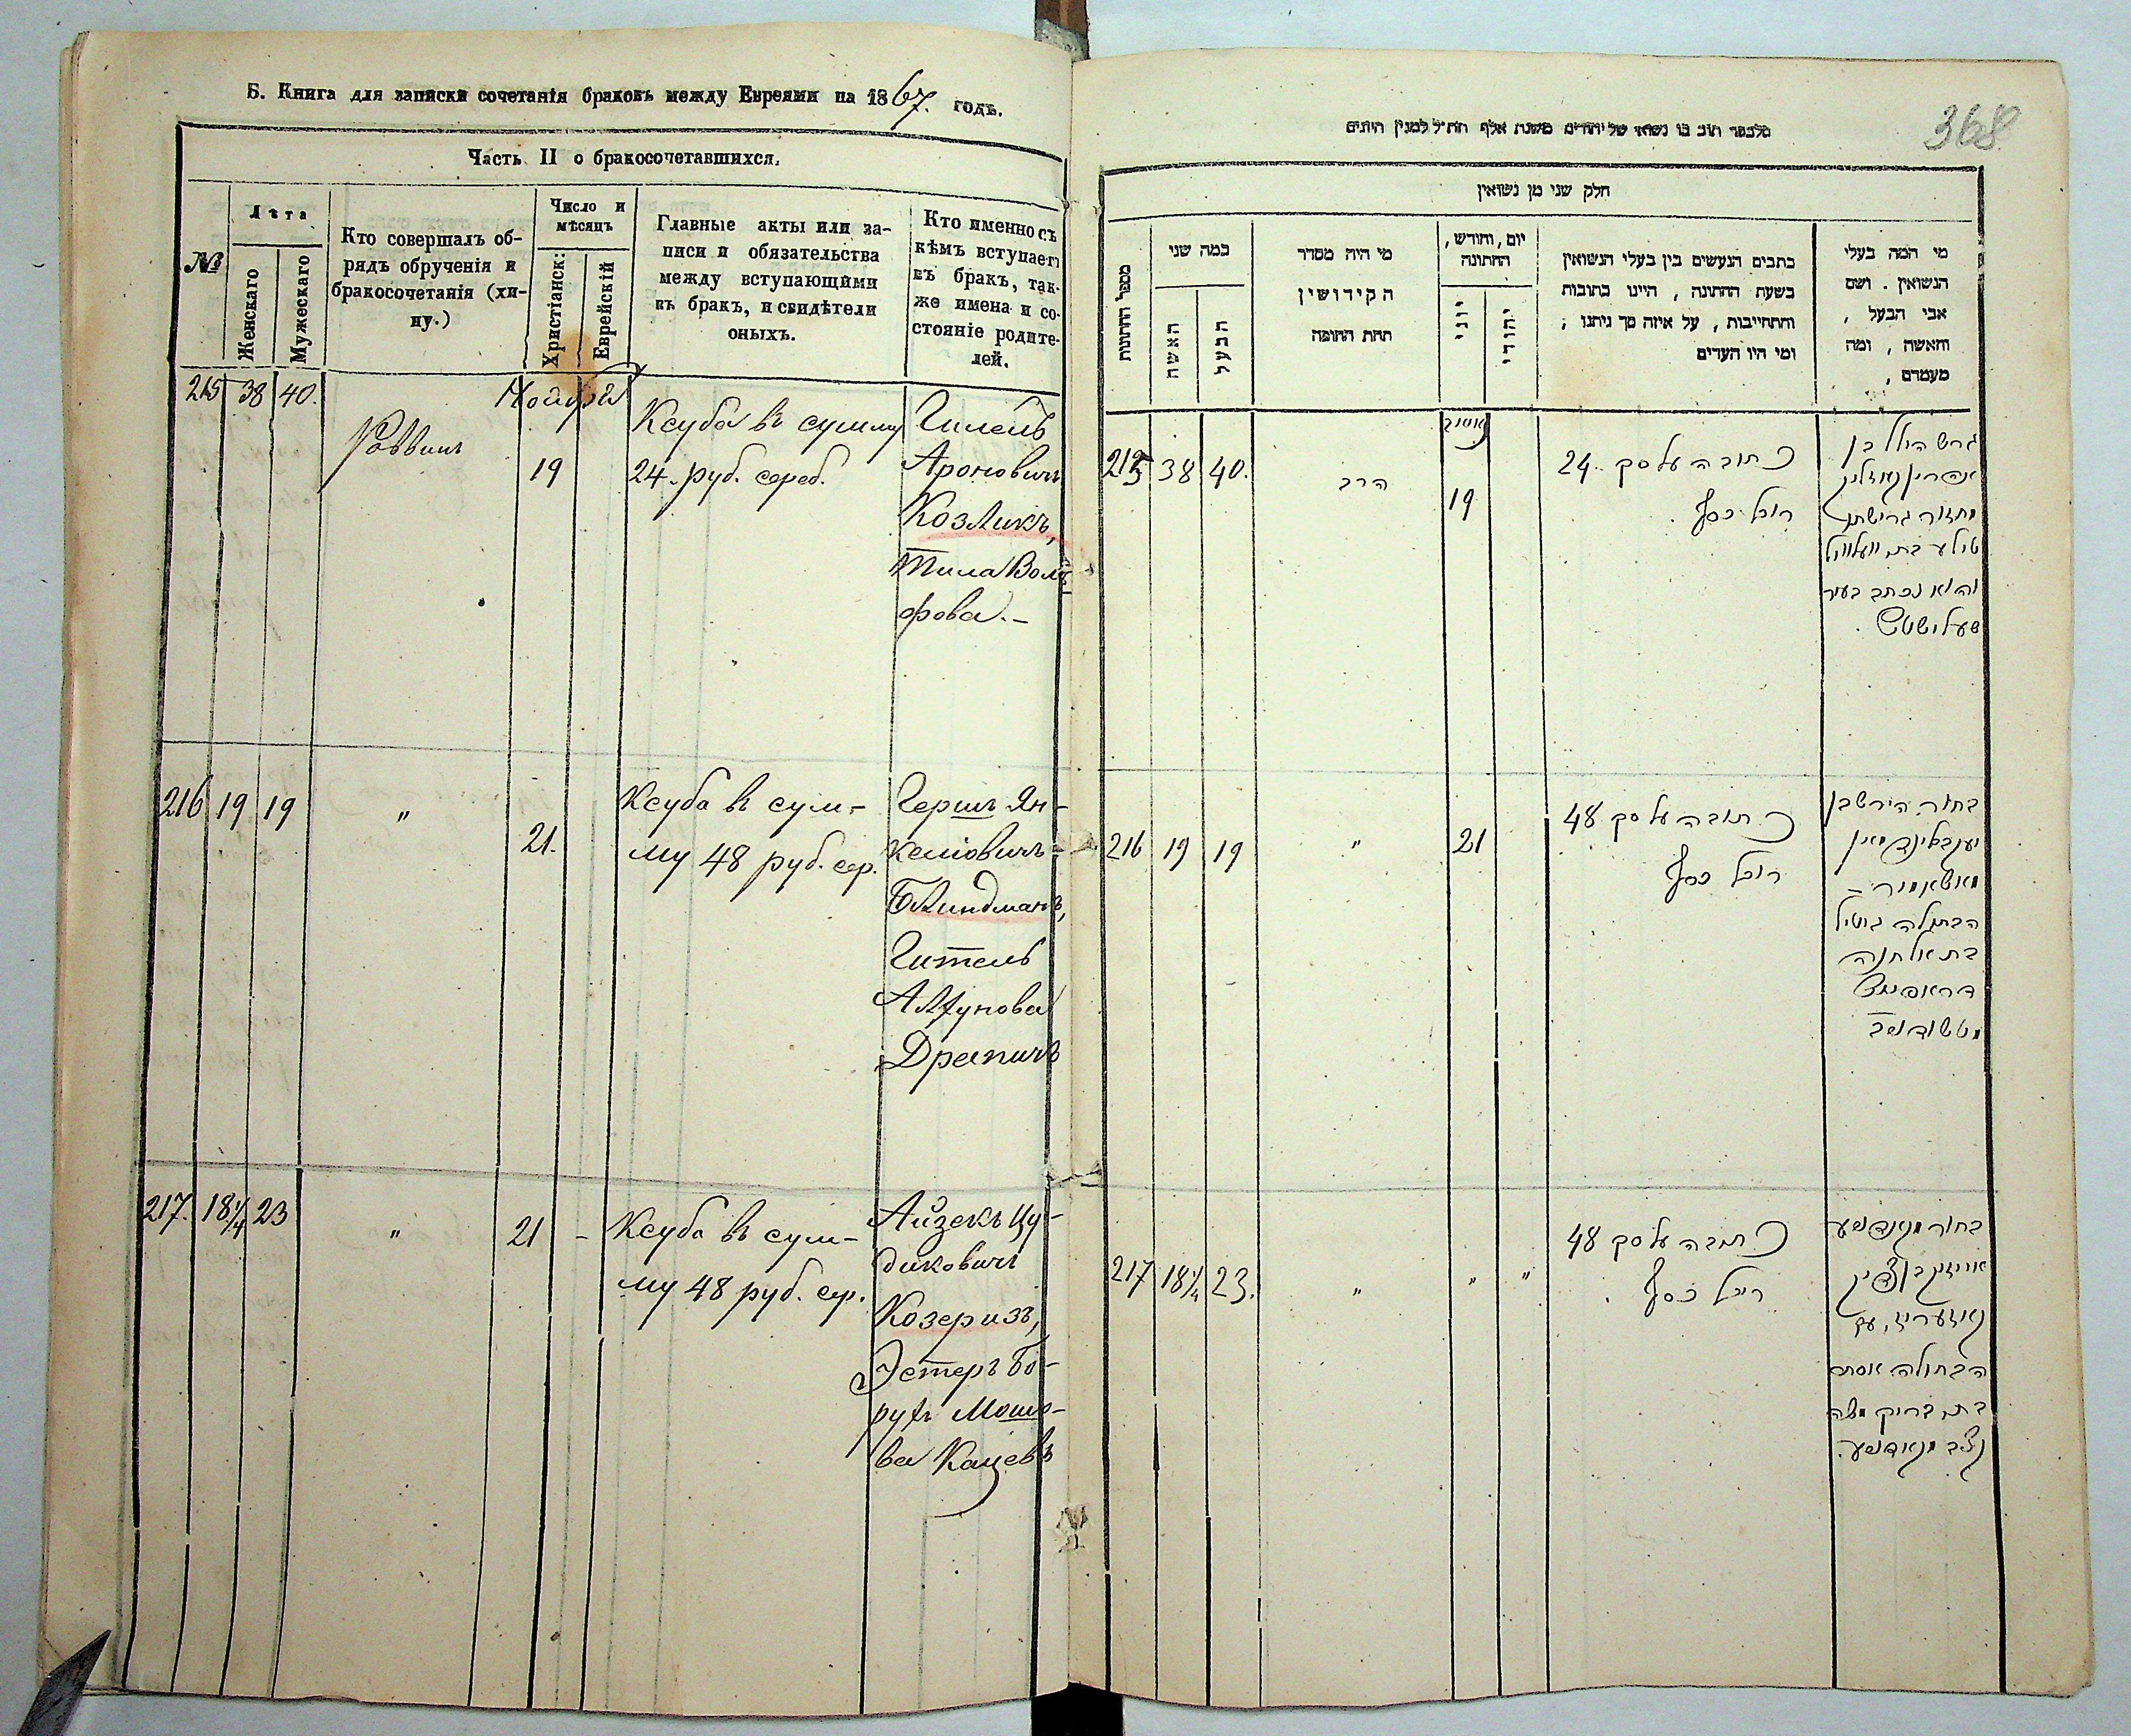 Б. Книга для записки сочетанія браковъ между Евреями на 1867. годъ.
Часть II о бракосочетавшихся.
№
Лѣта
Женскаго
Мужескаго
Кто совершалъ об-
рядъ обрученія и
бракосочетанія (хи-
пу.)
Число и
мѣсяцъ
Христіанск:
Еврейскій
Главные акты или за-
писи и обязательства
между вступающими
въ бракъ, и свидѣтели
оныхъ.
Кто именно съ
кѣмъ вступаетъ
въ бракъ, так-
же имена и со-
стояніе родите-
лей.
215 38 40.
Раввинъ
Ноября
19
Ксуба въ сумму
24. руб. сереб.
Гилель
Ароновичъ
Козликъ,
Тила Воль
фова.-
216 19 19
"
21.
Ксуба въ сум-
му 48 руб. сер.
Гершъ Ян-
келіовичъ
Блиндманъ,
Гитель
Алхунова
Драпичъ
217. 18 1/4 23
"
21 -
Ксуба въ сум-
му 48 руб. сер.
Айзекъ Цу-
диковичъ
Козеризъ,
Эстеръ Бо-
рухъ Мошо-
ва Кацевъ
368
חלק שני מן נשואין
מספר החתונות
כמה שני
האשה
הבעל
מי היה מסדר
הקידושין
תחת החופה
יום, וחודש,
החתונה
יוני
יהודי
כתבים הנעשים בין בעלי הנשואין
בשעת החתונה, היינו כתובות
והתחייבות, על איזה סך ניתנו;
ומי היו העדים
מי המה בעלי
הנשואין. ושם
אבי הבעל,
והאשה, ומה
מעמדם,
215 38 40.
הרב
19
כתובה על סך 24.
רובל כסף
גרש הילל בן
טילע בת וועלוויל
והוא נכתב בעיר
216 19 19
"
21
כתובה על סך 48
רובל כסף
בחור הירש בן
הבתולה גיטיל
בת אלחנה
217 18 1/4 23.
"
" "
כתובה על סך 48
רובל כסף
הבתולה אסתר